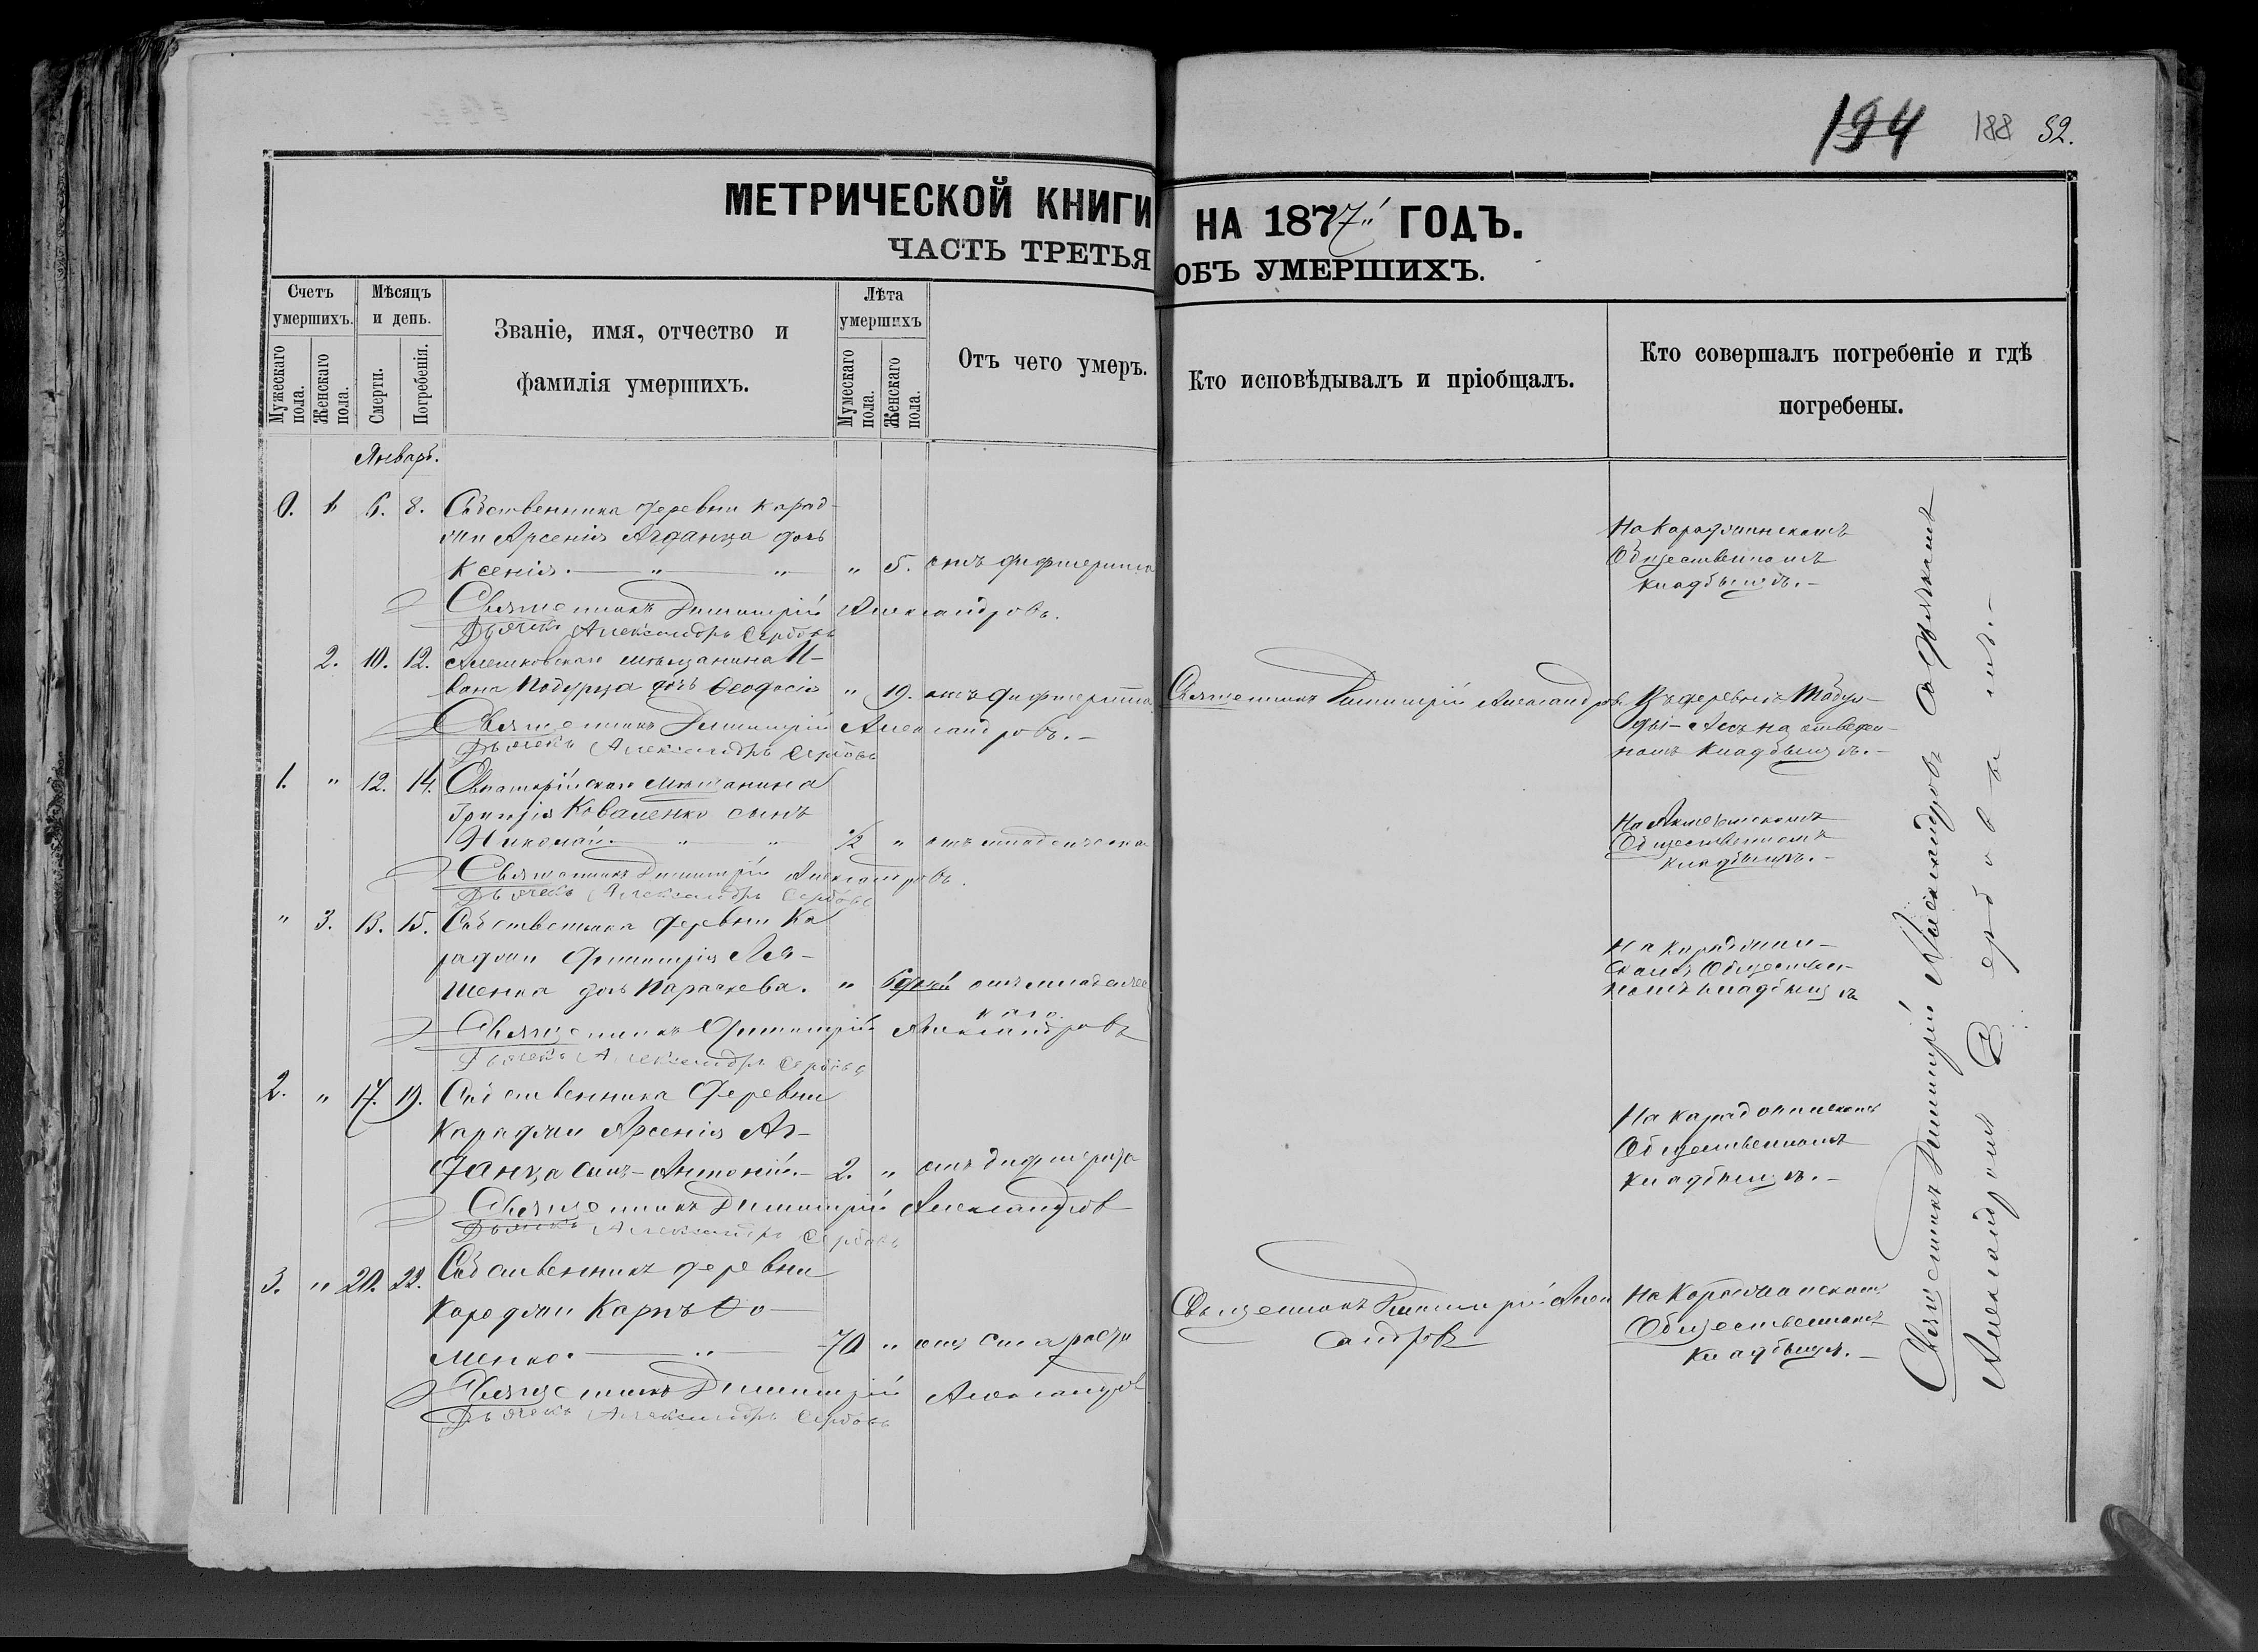 194 188 52.
МЕТРИЧЕСКОЙ КНИГИ НА 1877 ГОДЪ.
ЧАСТЬ ТРЕТЬЯ ОБЪ УМЕРШИХЪ.
Счетъ умершихъ.
Мужескаго пола.
Женскаго пола.
Мѣсяцъ и день.
Смерти.
Погребенія.
Званіе, имя, отчество и
фамилія умершихъ.
Лѣта умершихъ
Мужескаго пола.
Женскаго пола.
Отъ чего умеръ.
Кто исповѣдывалъ и пріобщалъ.
Кто совершалъ погребеніе и гдѣ
погребены.
Январь.
0. 1 6. 8. Собственника деревни Карад-
жи Арсенія дочь
Ксенія. " " " 5. отъ дифтерита
На Караджинскомъ
Общественномъ
кладбищѣ.
Священникъ Димитрій Александровъ.
Дьячекъ Александръ Сербовъ
2. 10. 12. Алешковскаго мѣщанина И-
вана дочь Ѳеодосія " 19. отъ дифтерита
Священникъ Димитрій Александровъ
Въ деревнѣ
на отведен-
номъ кладбищѣ.
Священникъ Димитрій Александровъ.
Дьячекъ Александръ Сербовъ
1. " 12. 14. Евпаторійскаго мѣщанина
Григорія Коваленко сынъ
Николай. " " 1/2 " отъ младенческа
На Акмечетскомъ
Общественномъ
кладбищѣ.
Священникъ Димитрій Александровъ.
Дьячекъ Александръ Сербовъ
" 3. 13. 15. Собственника деревни Ка
раджи Димитрія Ля-
шенка дочь Параскева. " 6 дней отъ младенчес
каго
На Караджин-
скомъ Обществен-
номъ кладбищѣ
Священникъ Димитрій Александровъ
Дьячекъ Александръ Сербовъ
2. " 17. 19. Собственника деревни
Караджи Арсенія
сынъ Антоній. 2. " отъ дифтерита
На Караджинскомъ
Общественномъ
кладбищѣ.
Священникъ Димитрій Александровъ
Дьячекъ Александръ Сербовъ
3. " 20. 22. Собственникъ деревни
Караджи Карпъ Ѳо-
менко. " 70 " отъ старости
Священникъ Димитрій Алек
сандровъ
На Караджинскомъ
Общественномъ
кладбищѣ.
Священникъ Димитрій Александровъ
Дьячекъ Александръ Сербовъ
Священникъ Димитрій Александровъ съ Дьячкомъ
Александромъ Сербовымъ.